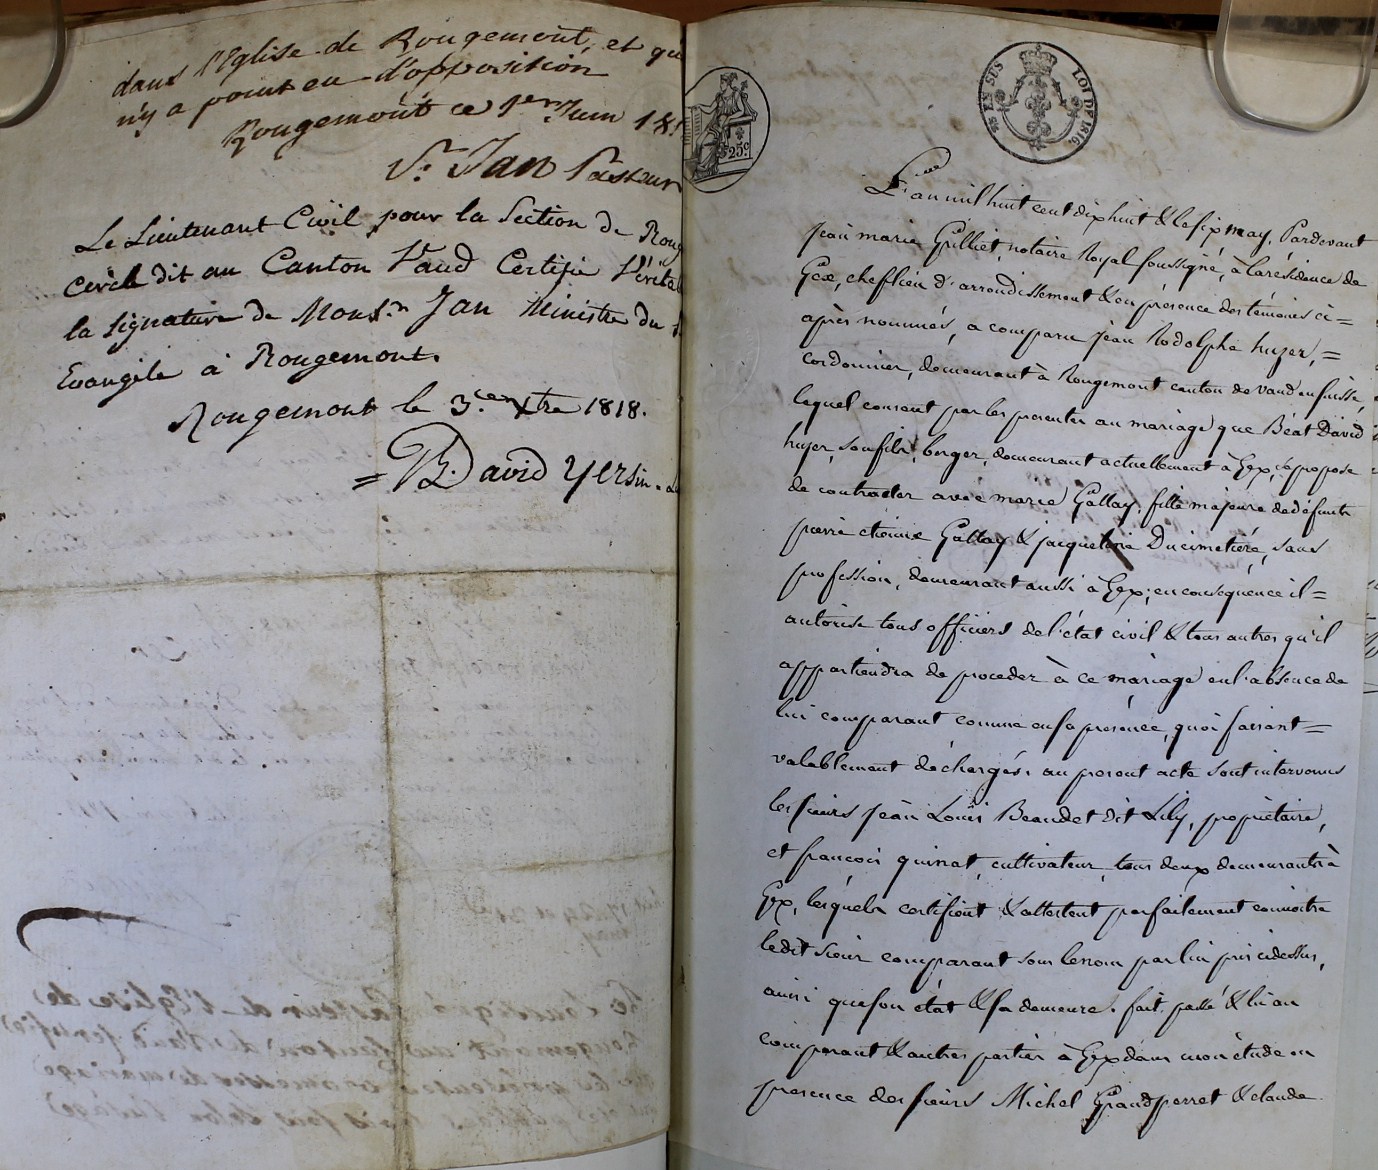 dans l'Eglise de Rougemont, et qu
n'y a point eu d'opposition
Rougemont ce 1er Juin 18
Sr. Jan Pasteur
Le Lieutenant Civil pour la Section de Roug
cercle dit au Canton Vaud Certifie Vérita
la signature de Monsr Jan Ministre du St
Evangile à Rougemont.
Rougemont le 3.e Xbre 1818.
= B. David Yersin.
25c.
EN SUS
LOI DE 1816
L'an mil huit cent dix huit & le six may, Pardevant
jean marie Grilliet, notaire Royal soussigné, à la résidence de
Gex, chef lieu d'arrondissement & en présence des témoins ci=
après nommés, a comparu jean Rodolphe huzer, =
cordonnier, demeurant à Rougemont canton de vaud en suisse,
lequel consent par les présentes au mariage que Béat David
huzer, son fils, berger, demeurant actuellement à Gex, se propose
de contracter avec marie Gallay, fille majeure de défunts
pierre etienne Gallay & jacqueline Ducimetière, sans
profession, demeurant aussi à Gex; en conséquence il=
autorise tous officiers de l'état civil & tous autres qu'il
appartiendra de proceder à ce mariage en l'absence de
lui comparant comme en sa présence, quoi faisant=
valablement déchargés. au présent acte sont intervenus
les sieurs jean Louis Beaudet dit Lily, propriétaire,
et françois quinat, cultivateur, tous deux demeurants à
Gex, lesquels certifient & attestent parfaitement connoitre
ledit sieur comparant sous le nom par lui pris cidessus,
ainsi que son état & sa demeure. fait, passé & lu au
comparant & autres parties à Gex dans mon étude en
présence des sieurs Michel Grandperret & claude